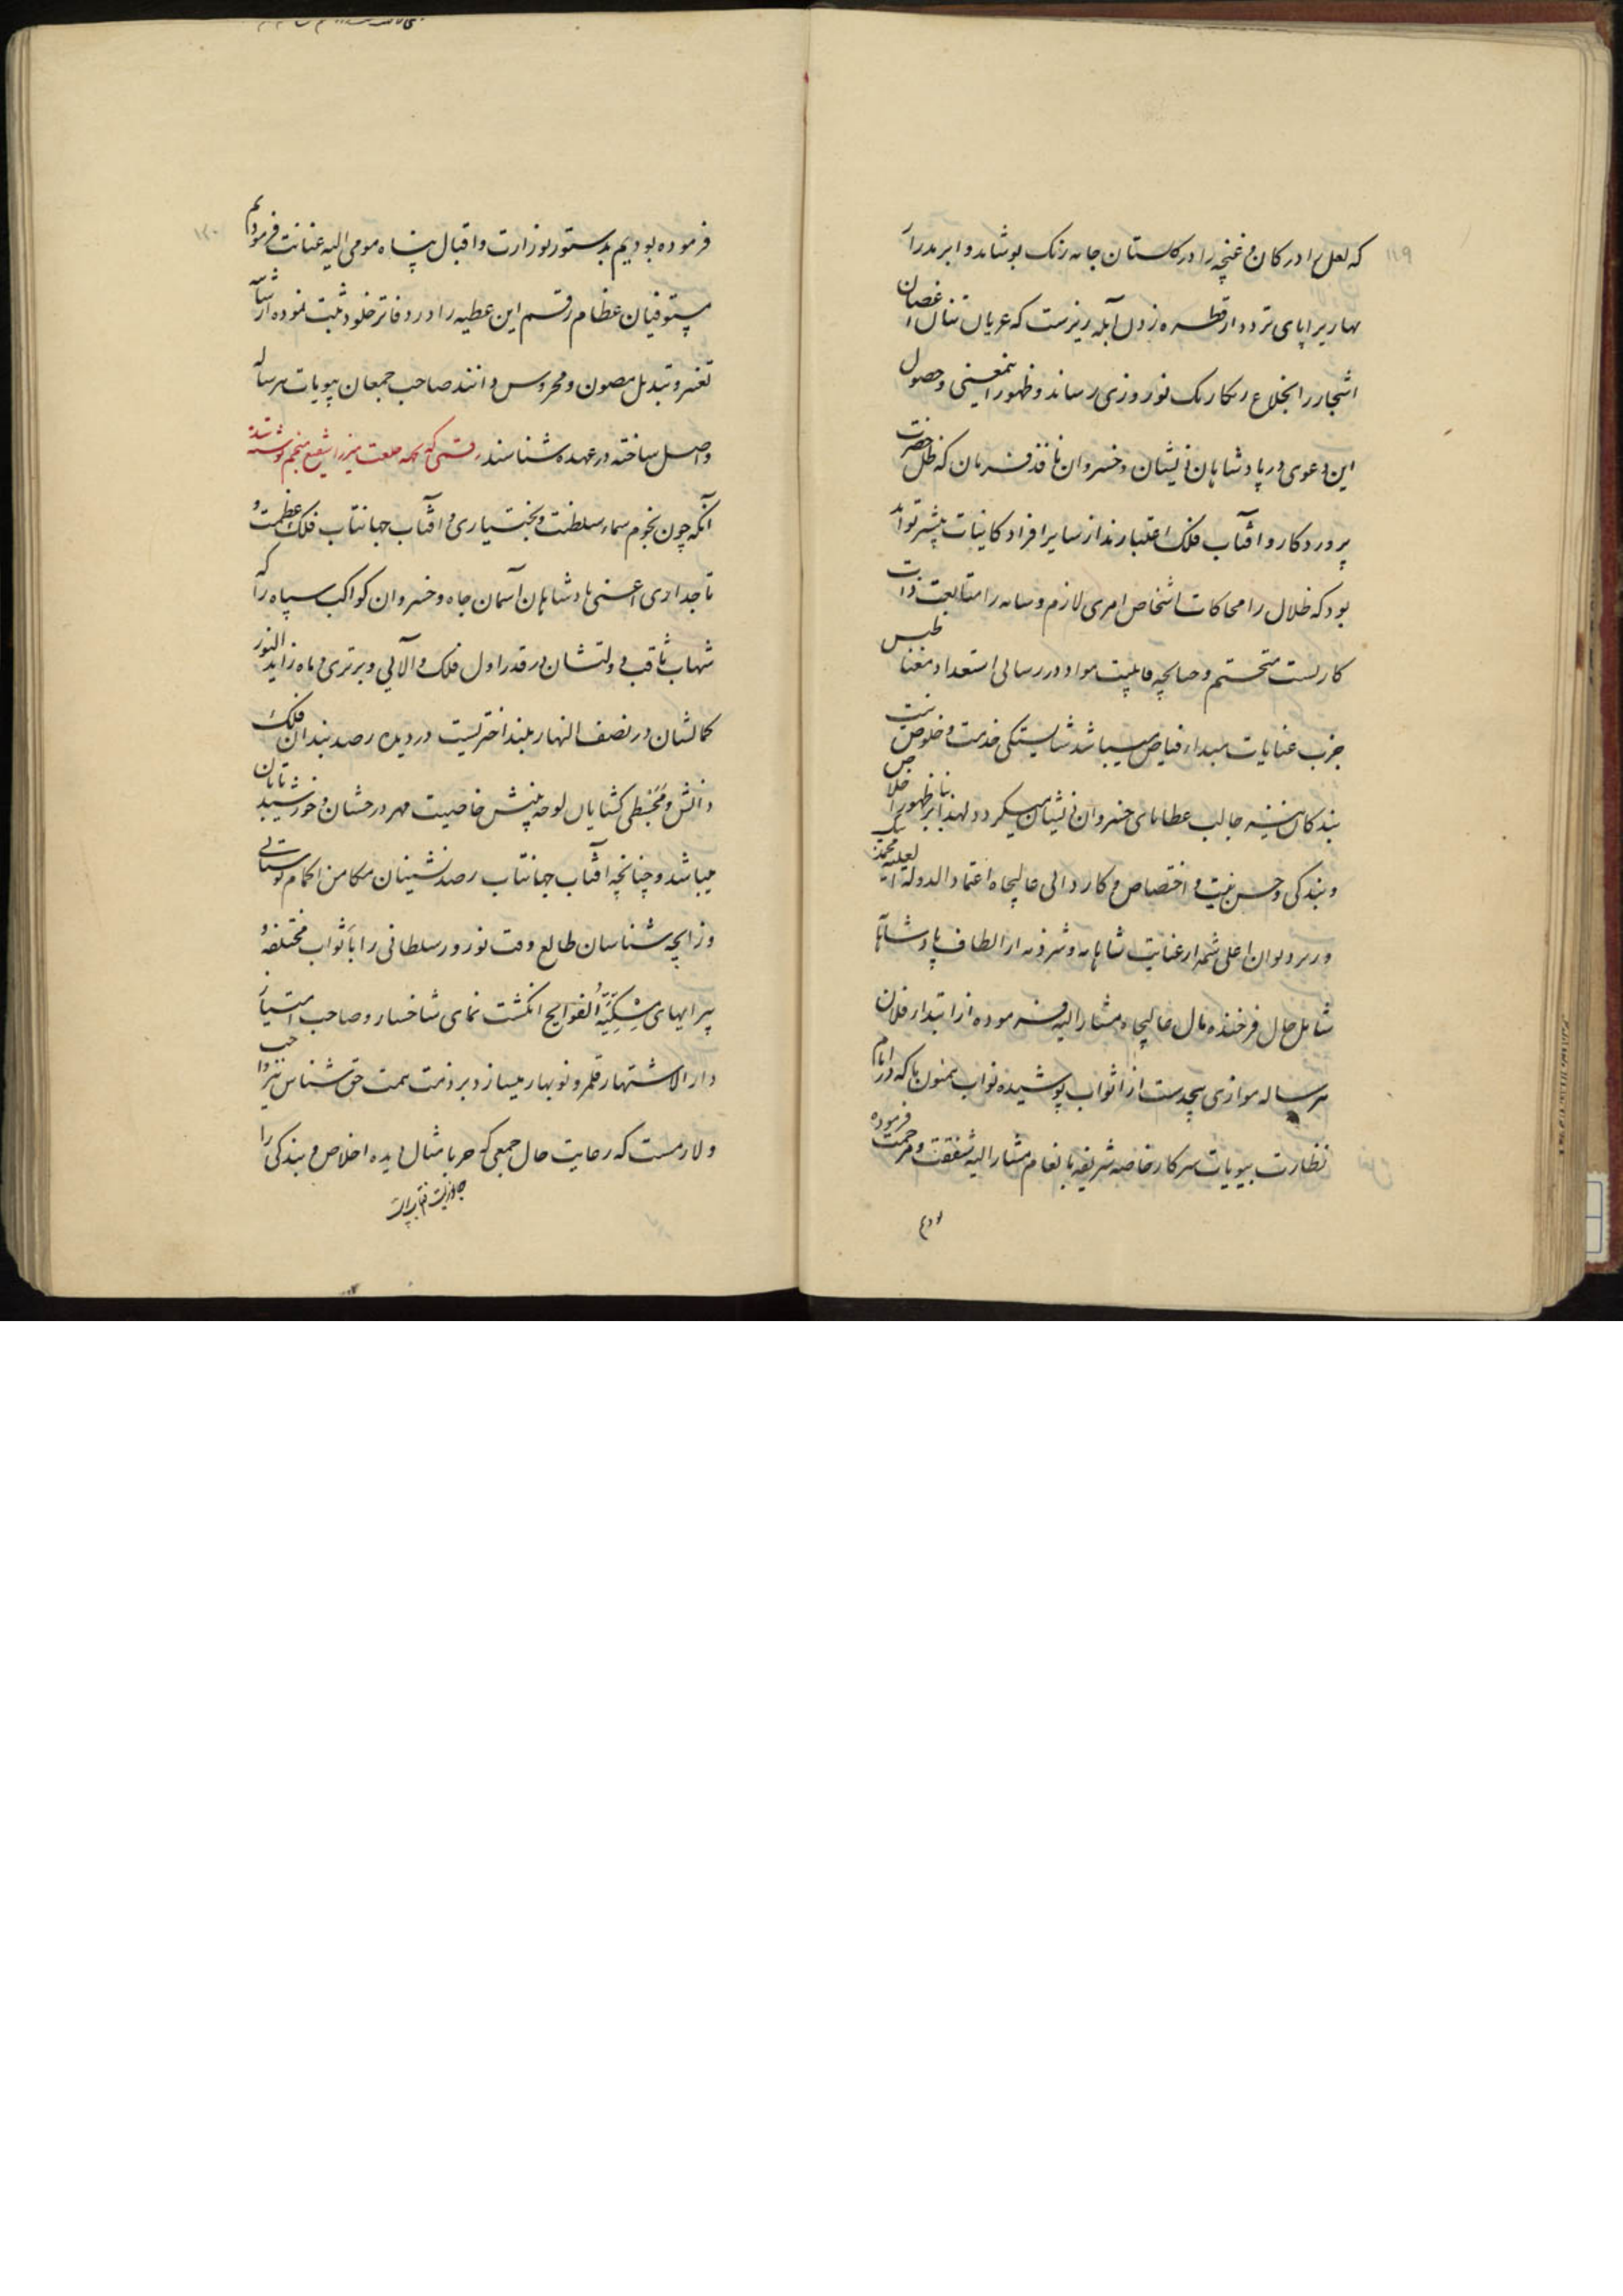 ۱۱۹
که لعل را در کان و غنچه را در گلستان جامه رنگ بو پوشاند و ابر مدرار
بهار را پای تردد از قطره زدن آبله ریزست که عریان تنان اغصان
اشجار را بخلاع رنگارنگ نوروزی رساند و ظهور اینمعنی و حصول
این دعوی در پادشاهان ذیشان و خسروان نافذ فرمان که ظل حضرت
پروردگار و آفتاب فلک اقتدارند از سایر افراد کاینات بیشتر تواند
بود که ظلال را محاکات اشخاص امری لازم و سایه را متابعت ذات
کاریست متحتم و چنانچه قابلیت مواد در رسائی استعداد مغناطیس
جذب عنایات مبداء فیاض میباشد شایستگی خدمت و خلوص نیت
بندگان نیز جالب عطایای خسروان ذیشان میگردد لهذا بنابر ظهور اخلاص
و بندگی و حسن نیت و اختصاص و کاردانی عالیجاه اعتماد الدولة العلیه محمد بیک
وزیر دیوان اعلی شمه از عنایت شاهانه و شرذمه از الطاف پادشاهانه
شامل حال فرخنده مآل عالیجاه مشارالیه فرموده از ابتدا فلان
هرساله موازی پنجدست از اثواب پوشیده نواب همیون ما که در ایام
نظارت بیوتات سرکار خاصه شریفه بانعام مشارالیه شفقت و مرحمت فرموده
بودیم
۱۲۰
فرموده بودیم بدستور بوزارت و اقبال پناه مومی الیه عنایت فرمودیم
مستوفیان عظام رقم این عطیه را در دفاتر خلود ثبت نموده از شائبه
تغییر و تبدیل مصون و محروس دانند صاحب جمعان بیوتات هرساله
واصل ساخته در عهده شناسند رقمی که بجهه خلعت میرزا شفیع منجم نوشته شد
آنکه چون نجوم سماء سلطنت و بختیاری و آفتاب جهانتاب فلک عظمت و
تاجداری اعنی پادشاهان آسمان جاه و خسروان کواکب سپاه را که
شهاب ثاقب دولتشان در قدر اول فلک والائی و برتری و ماه زاید النور
کمالشان در نصف النهار بلند اختریست در دیده رصد بندان فلک
دانش و مجسطی گشایان لوحه بینش خاصیت مهر درخشان و خورشید تابان
میباشد و چنانچه آفتاب جهانتاب رصد نشینان مکامن اکمام بوستانی
و زایچه شناسان طالع وقت نوروز سلطانی را باثواب مختلفه و
پیرایهای مسکیة الفوایح انگشت نمای شاخسار و صاحب امتیاز
دار الاشتهار قلمرو نوبهار میسازد بر ذمت همت حق شناس نیز واجب
و لازمست که رعایت حال جمعی که حربا مثال دیده اخلاص و بندگی را